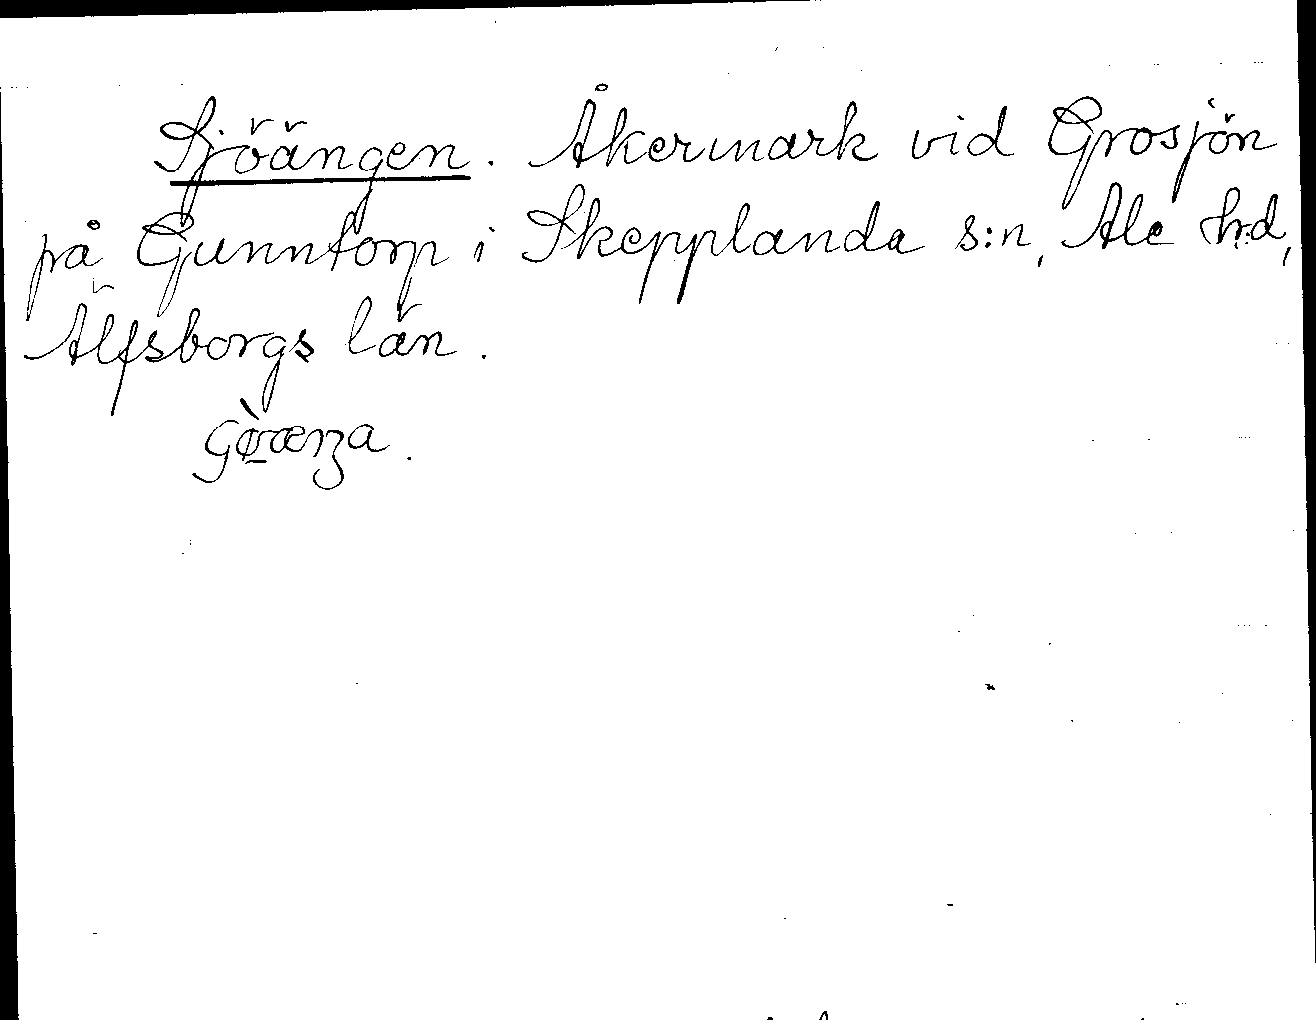 Sjöängen. Åkermark vid Grosjön
på Gunntorp i Skepplanda s:n, Ale h:d,
Älfsborgs län.